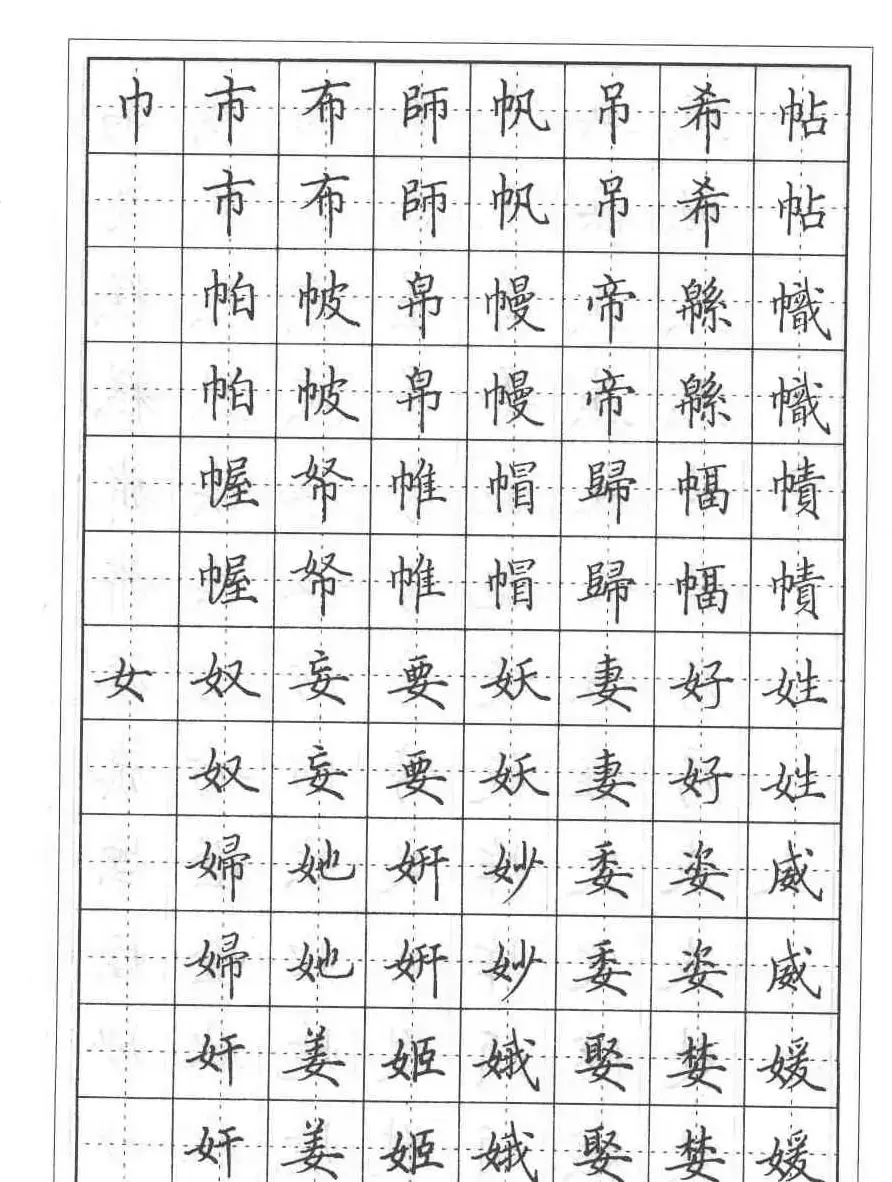 巾 市 布 師 帆 吊 希 帖
市 布 師 帆 吊 希 帖
帕 帔 帛 幔 帝 緜 幟
帕 帔 帛 幔 帝 緜 幟
幄 帑 帷 帽 歸 幅 幘
幄 帑 帷 帽 歸 幅 幘
女 奴 妄 要 妖 妻 好 姓
奴 妄 要 妖 妻 好 姓
婦 她 妍 妙 委 姿 威
婦 她 妍 妙 委 姿 威
奸 姜 姬 娥 娶 婪 媛
奸 姜 姬 娥 娶 婪 媛